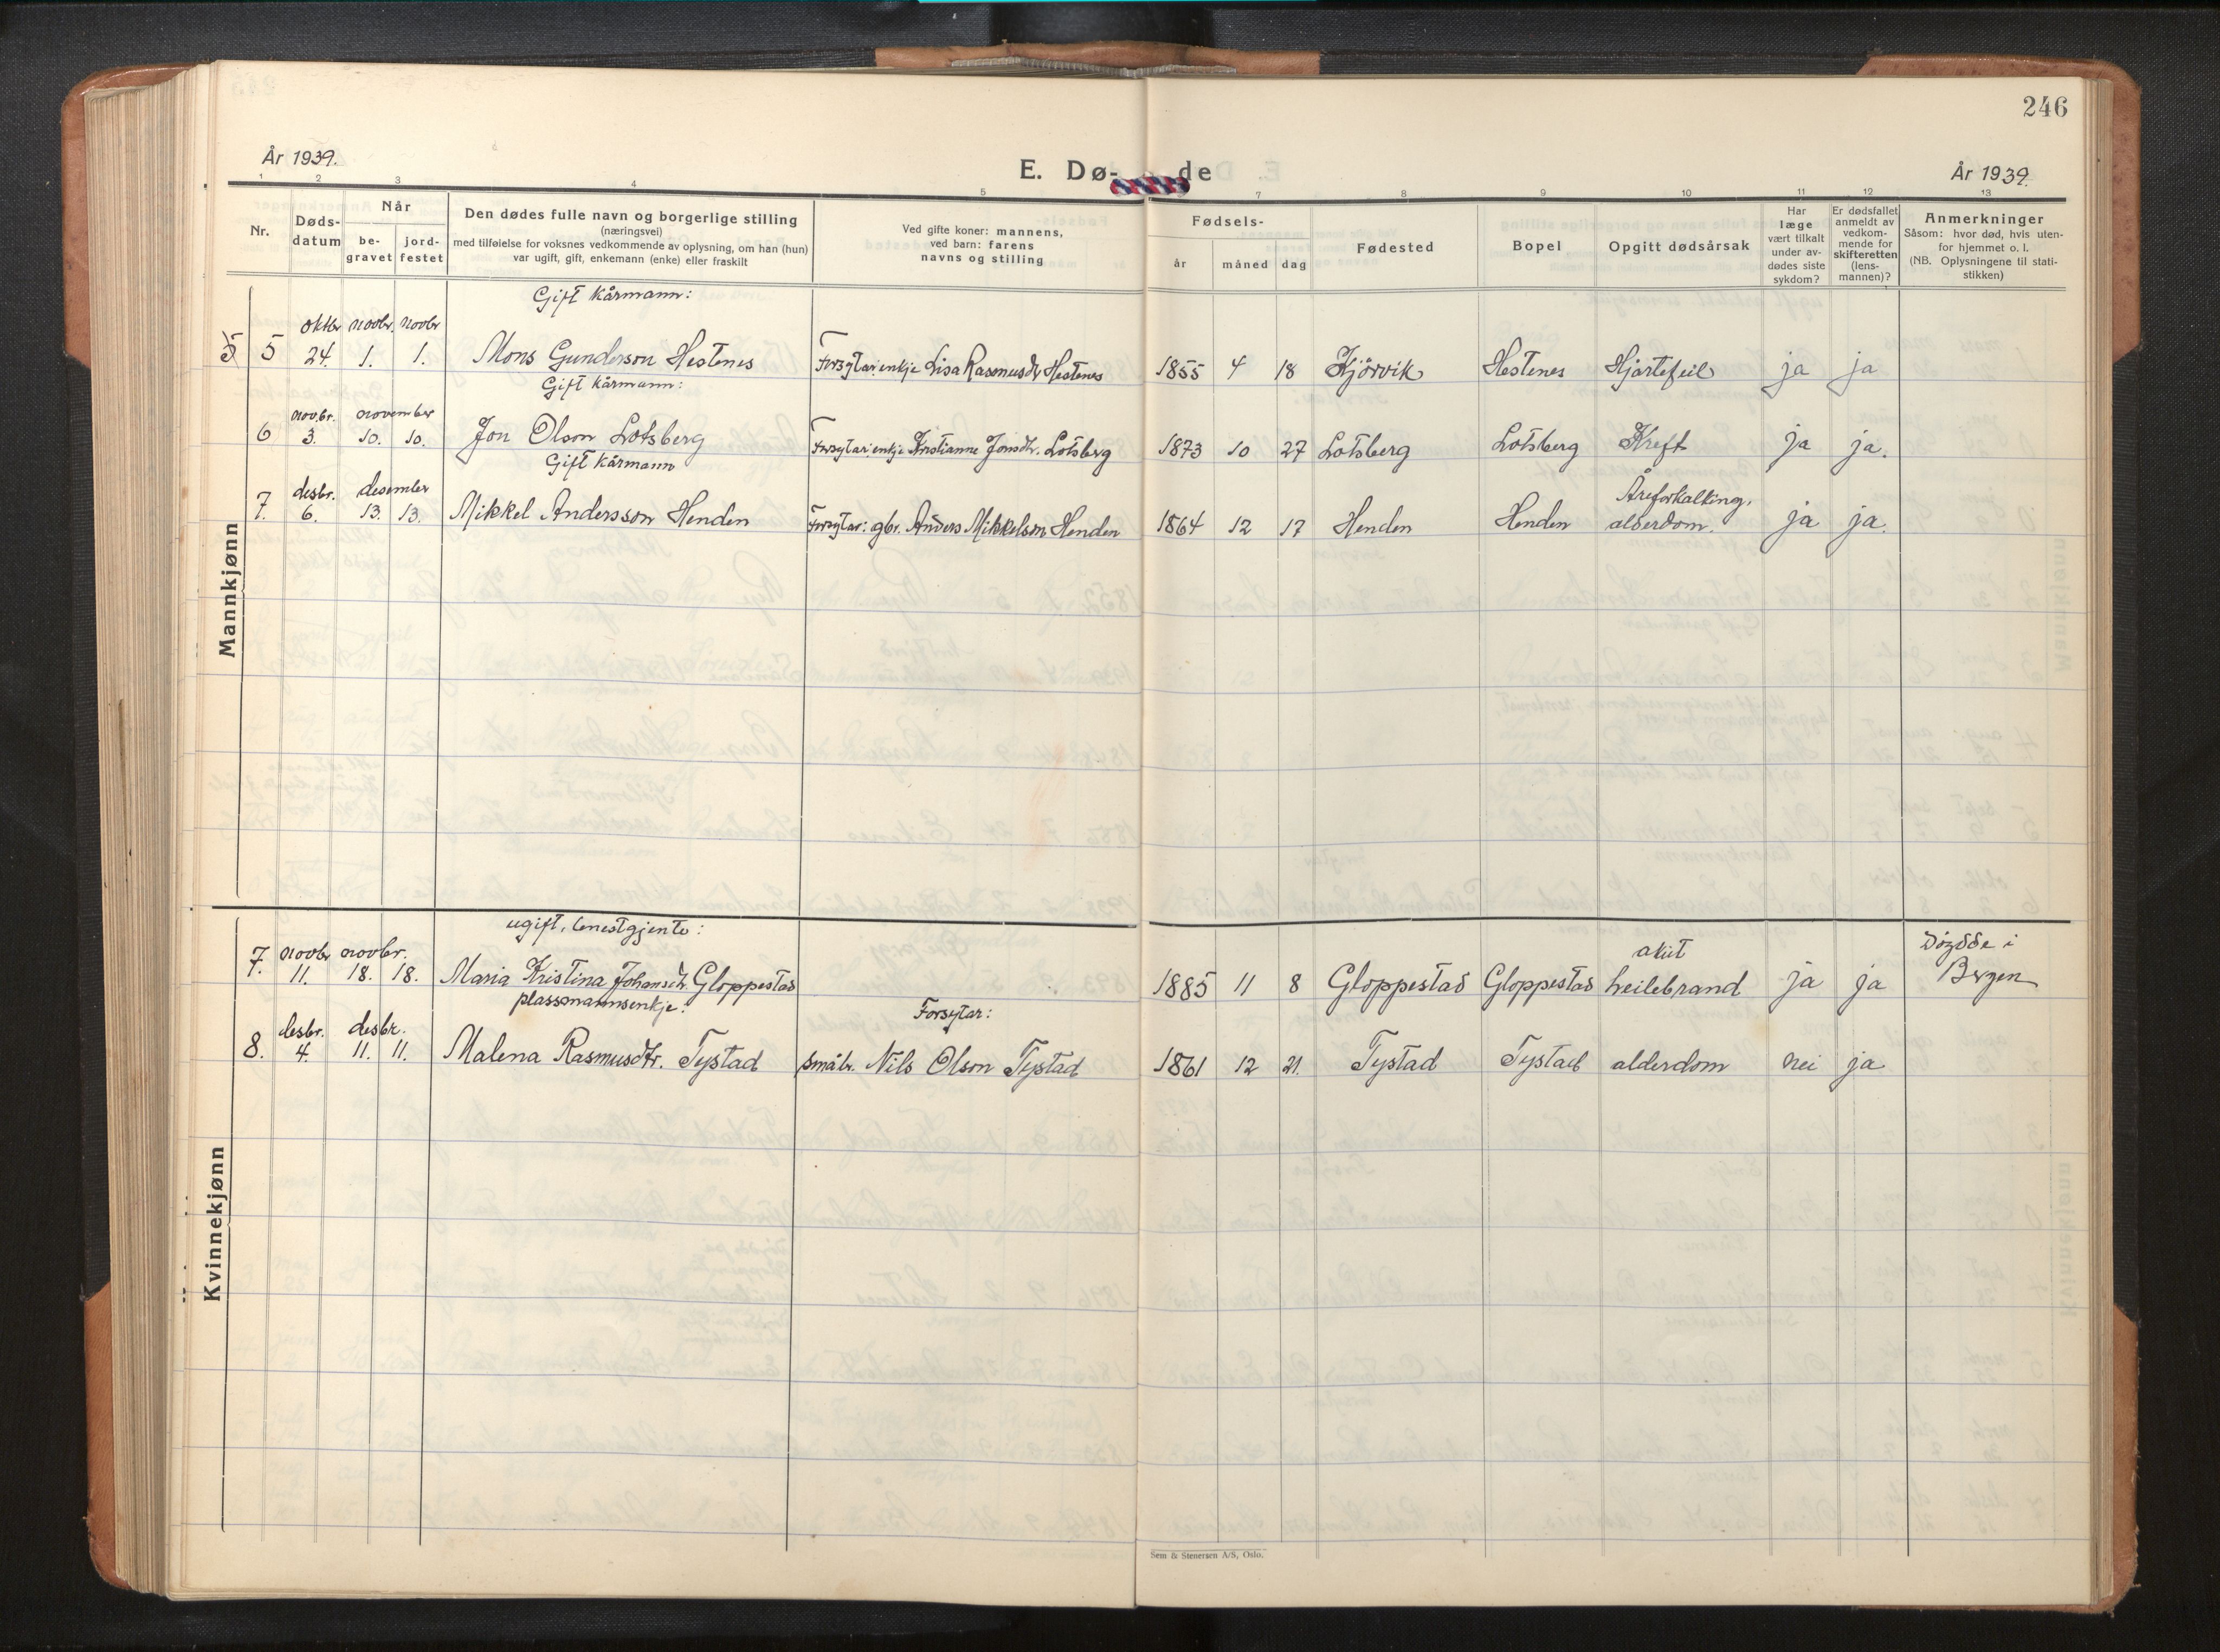 246
År 1939.
E. Dø- de
År 1939.
1 2 3 4 5 7 8 9 10 11 12 13
Nr.
Døds-
datum
Når
be-
gravet
jord-
festet
Den dødes fulle navn og borgerlige stilling
(næringsvei)
med tilføielse for voksnes vedkommende av oplysning, om han (hun)
var ugift, gift, enkemann (enke) eller fraskilt
Ved gifte koner: mannens,
ved barn: farens
navns og stilling
Fødsels-
år måned dag
Fødested
Bopel
Opgitt dødsårsak
Har
læge
vært tilkalt
under av-
dødes siste
sykdom?
Er dødsfallet
anmeldt av
vedkom-
mende for
skifteretten
(lens-
mannen)?
Anmerkninger
Såsom: hvor død, hvis uten-
for hjemmet o. l.
(NB. Oplysningene til stati-
stikken)
Mannkjønn
Gift kårmann:
oktbr novbr. novbr
5 5 24. 1. 1. Mons Gunderson Hestenes Forsytar: enkje Lisa Rasmusdtr Hestenes 1855 4 18 Kjörvik Hestenes Hjartefeil ja ja
Gift kårmann:
novbr. november
6 3. 10. 10. Jon Olson Lotsberg Forsytar: enkje Kristianne Jonsdtr. Lotsberg 1873 10 27 Lotsberg Lotsberg Kreft ja ja.
Gift kårmann
desbr. desember Åreforkalking,
7. 6. 13. 13. Mikkel Andersson Henden Forsytar: gbr. Anders Mikkelson Henden 1864 12 17 Henden Henden alderdom. ja ja.
Kvinnekjønn
ugift, tenestgjente:
novbr novbr. akut döydde i
7. 11. 18. 18. Maria Kristina Johansdtr. Gloppestad 1885 11 8 Gloppestad Gloppestad heilebrand ja ja Bergen
plassmannsenkje: Forsytar:
desbr. desbr.
8. 4. 11. 11. Malena Rasmusdtr. Tystad småbr. Nils Olson Tystad 1861 12 21. Tystad Tystad alderdom nei ja
Sem & Stenersen A/S, Oslo.